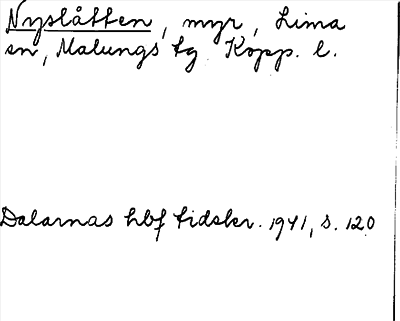 Nyslåtten, myr, Lima
sn, Malungs tg Kopp. l.
Dalarnas hbf tidskr. 1941, s. 120